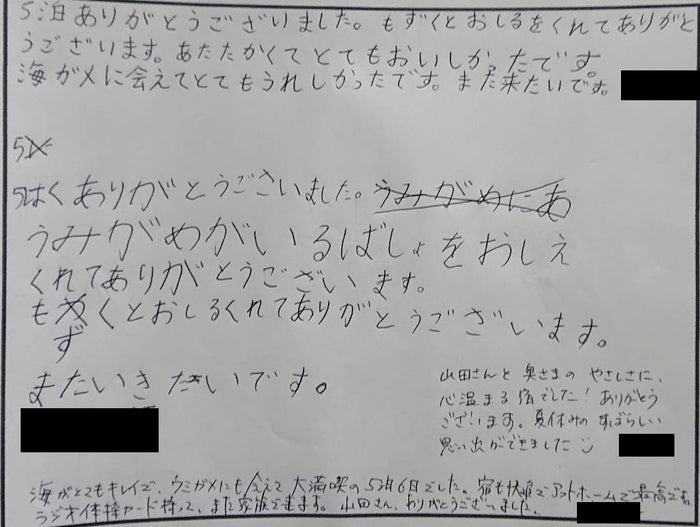 5泊ありがとうございました。もずくとおしるをくれてありがと
うございます。あたたかくてとてもおいしかったです。
海ガメに会えてとてもうれしかったです。また来たいです。
5はくありがとうございました。うみがめにあ
うみがめがいるばしょをおしえ
くれてありがとうございます。
もずくとおしるくれてありがとうございます。
またいきたいです。
山田さんと奥さまのやさしさに、
心温まる宿でした!ありがとう
ございます。夏休みのすばらしい
思い出ができました
海がとてもキレイで、ウミガメにも会えて大満喫の5泊6日でした。宿も快適でアットホームで最高でした
ラジオ体操カード持って、また家族で来ます。山田さん、ありがとうございました。